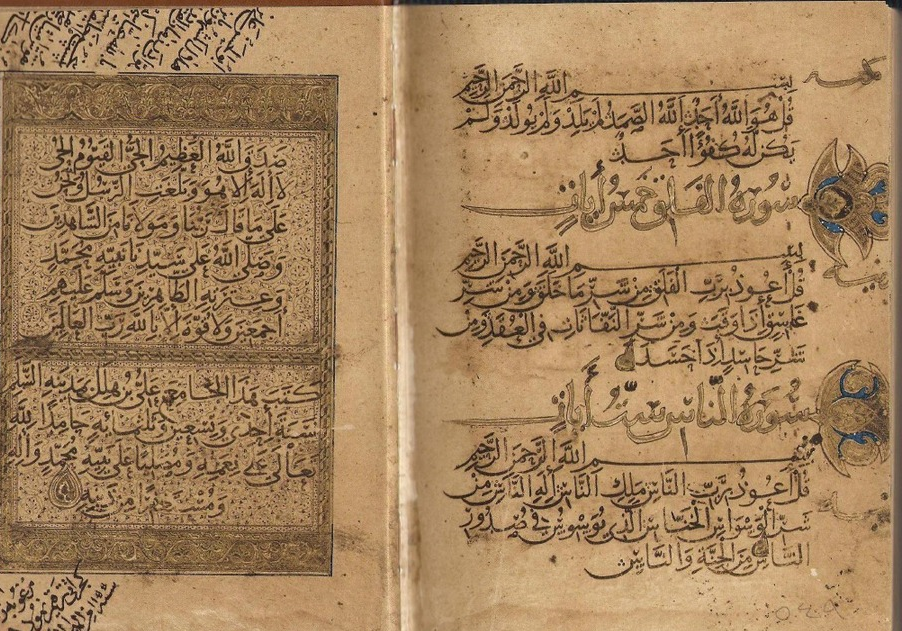 بسم الله الرحمن الرحيم
قل هو الله أحد الله الصمد لم يلد ولم يولد ولم
يكن له كفوًا أحد
سورة الفلق خمس أيات
بسم الله الرحمن الرحيم
قل أعوذ برب الفلق من شر ما خلق ومن شر
غاسق إذا وقب ومن شر النفاثات في العقد ومن
شر حاسد إذا حسد
سورة الناس ست أيات
بسم الله الرحمن الرحيم
قل أعوذ برب الناس ملك الناس إله الناس من
شر الوسواس الخناس الذي يوسوس في صدور
الناس من الجنة والناس
صدق الله العظيم الحي القيوم الحي
لا إله إلا هو وبلغت الرسل ونحن
على ما قال ربنا ومولانا من الشاهدين
وصلى الله على سيدنا نبيه محمد
وعترته الطاهرين وسلم عليهم
أجمعين ولا قوة إلا بالله رب العالمين
كتب هذا الجامع علي بن هلال بمدينة السلام
سنة أحدى وتسعين وثلثمائة حامدا لله
تعالى على نعمه ومصليا على نبيه محمد وآله
ومستغفرا من ذنبه